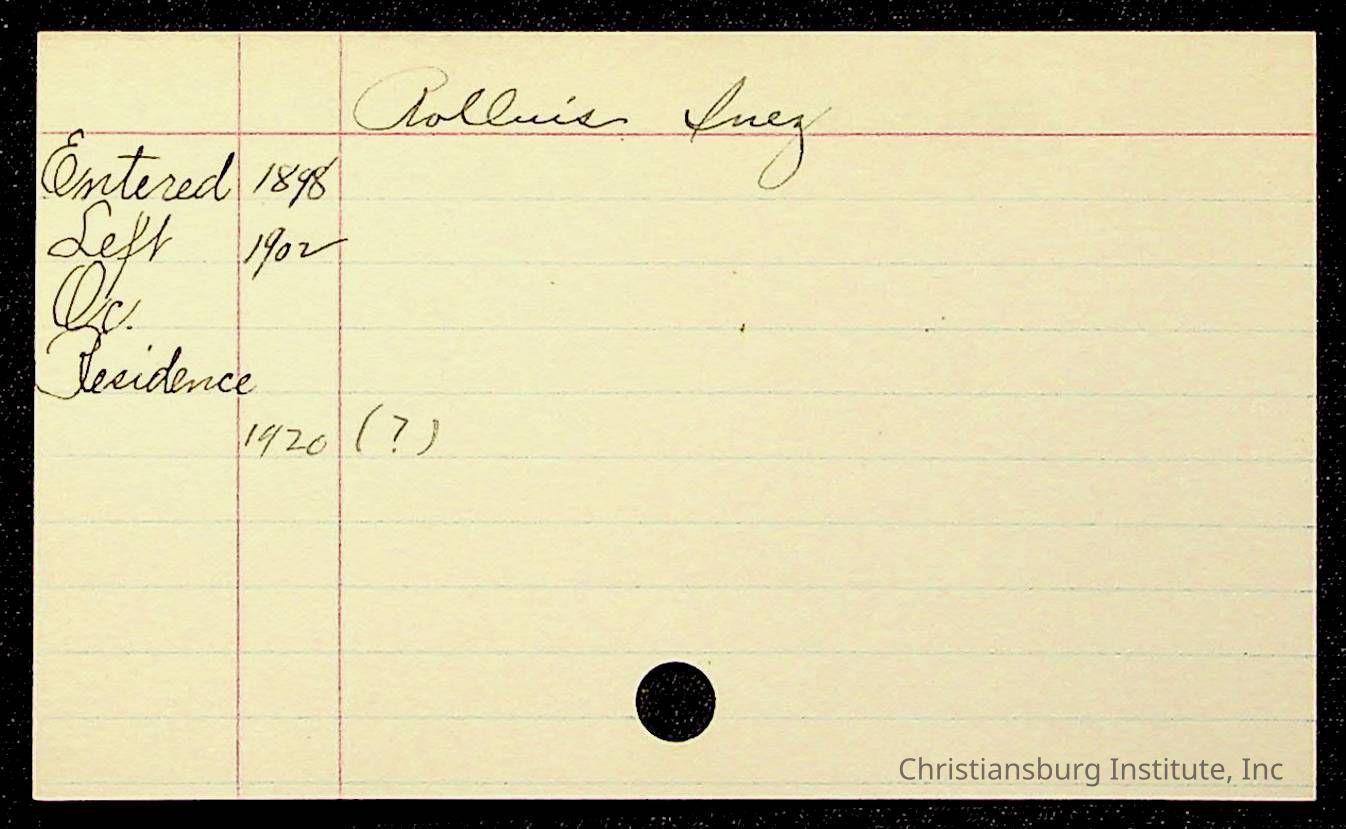 Rollins Inez
Entered 1898
Left 1902
Oc.
Residence
1920 (?)
Christiansburg Institute, Inc